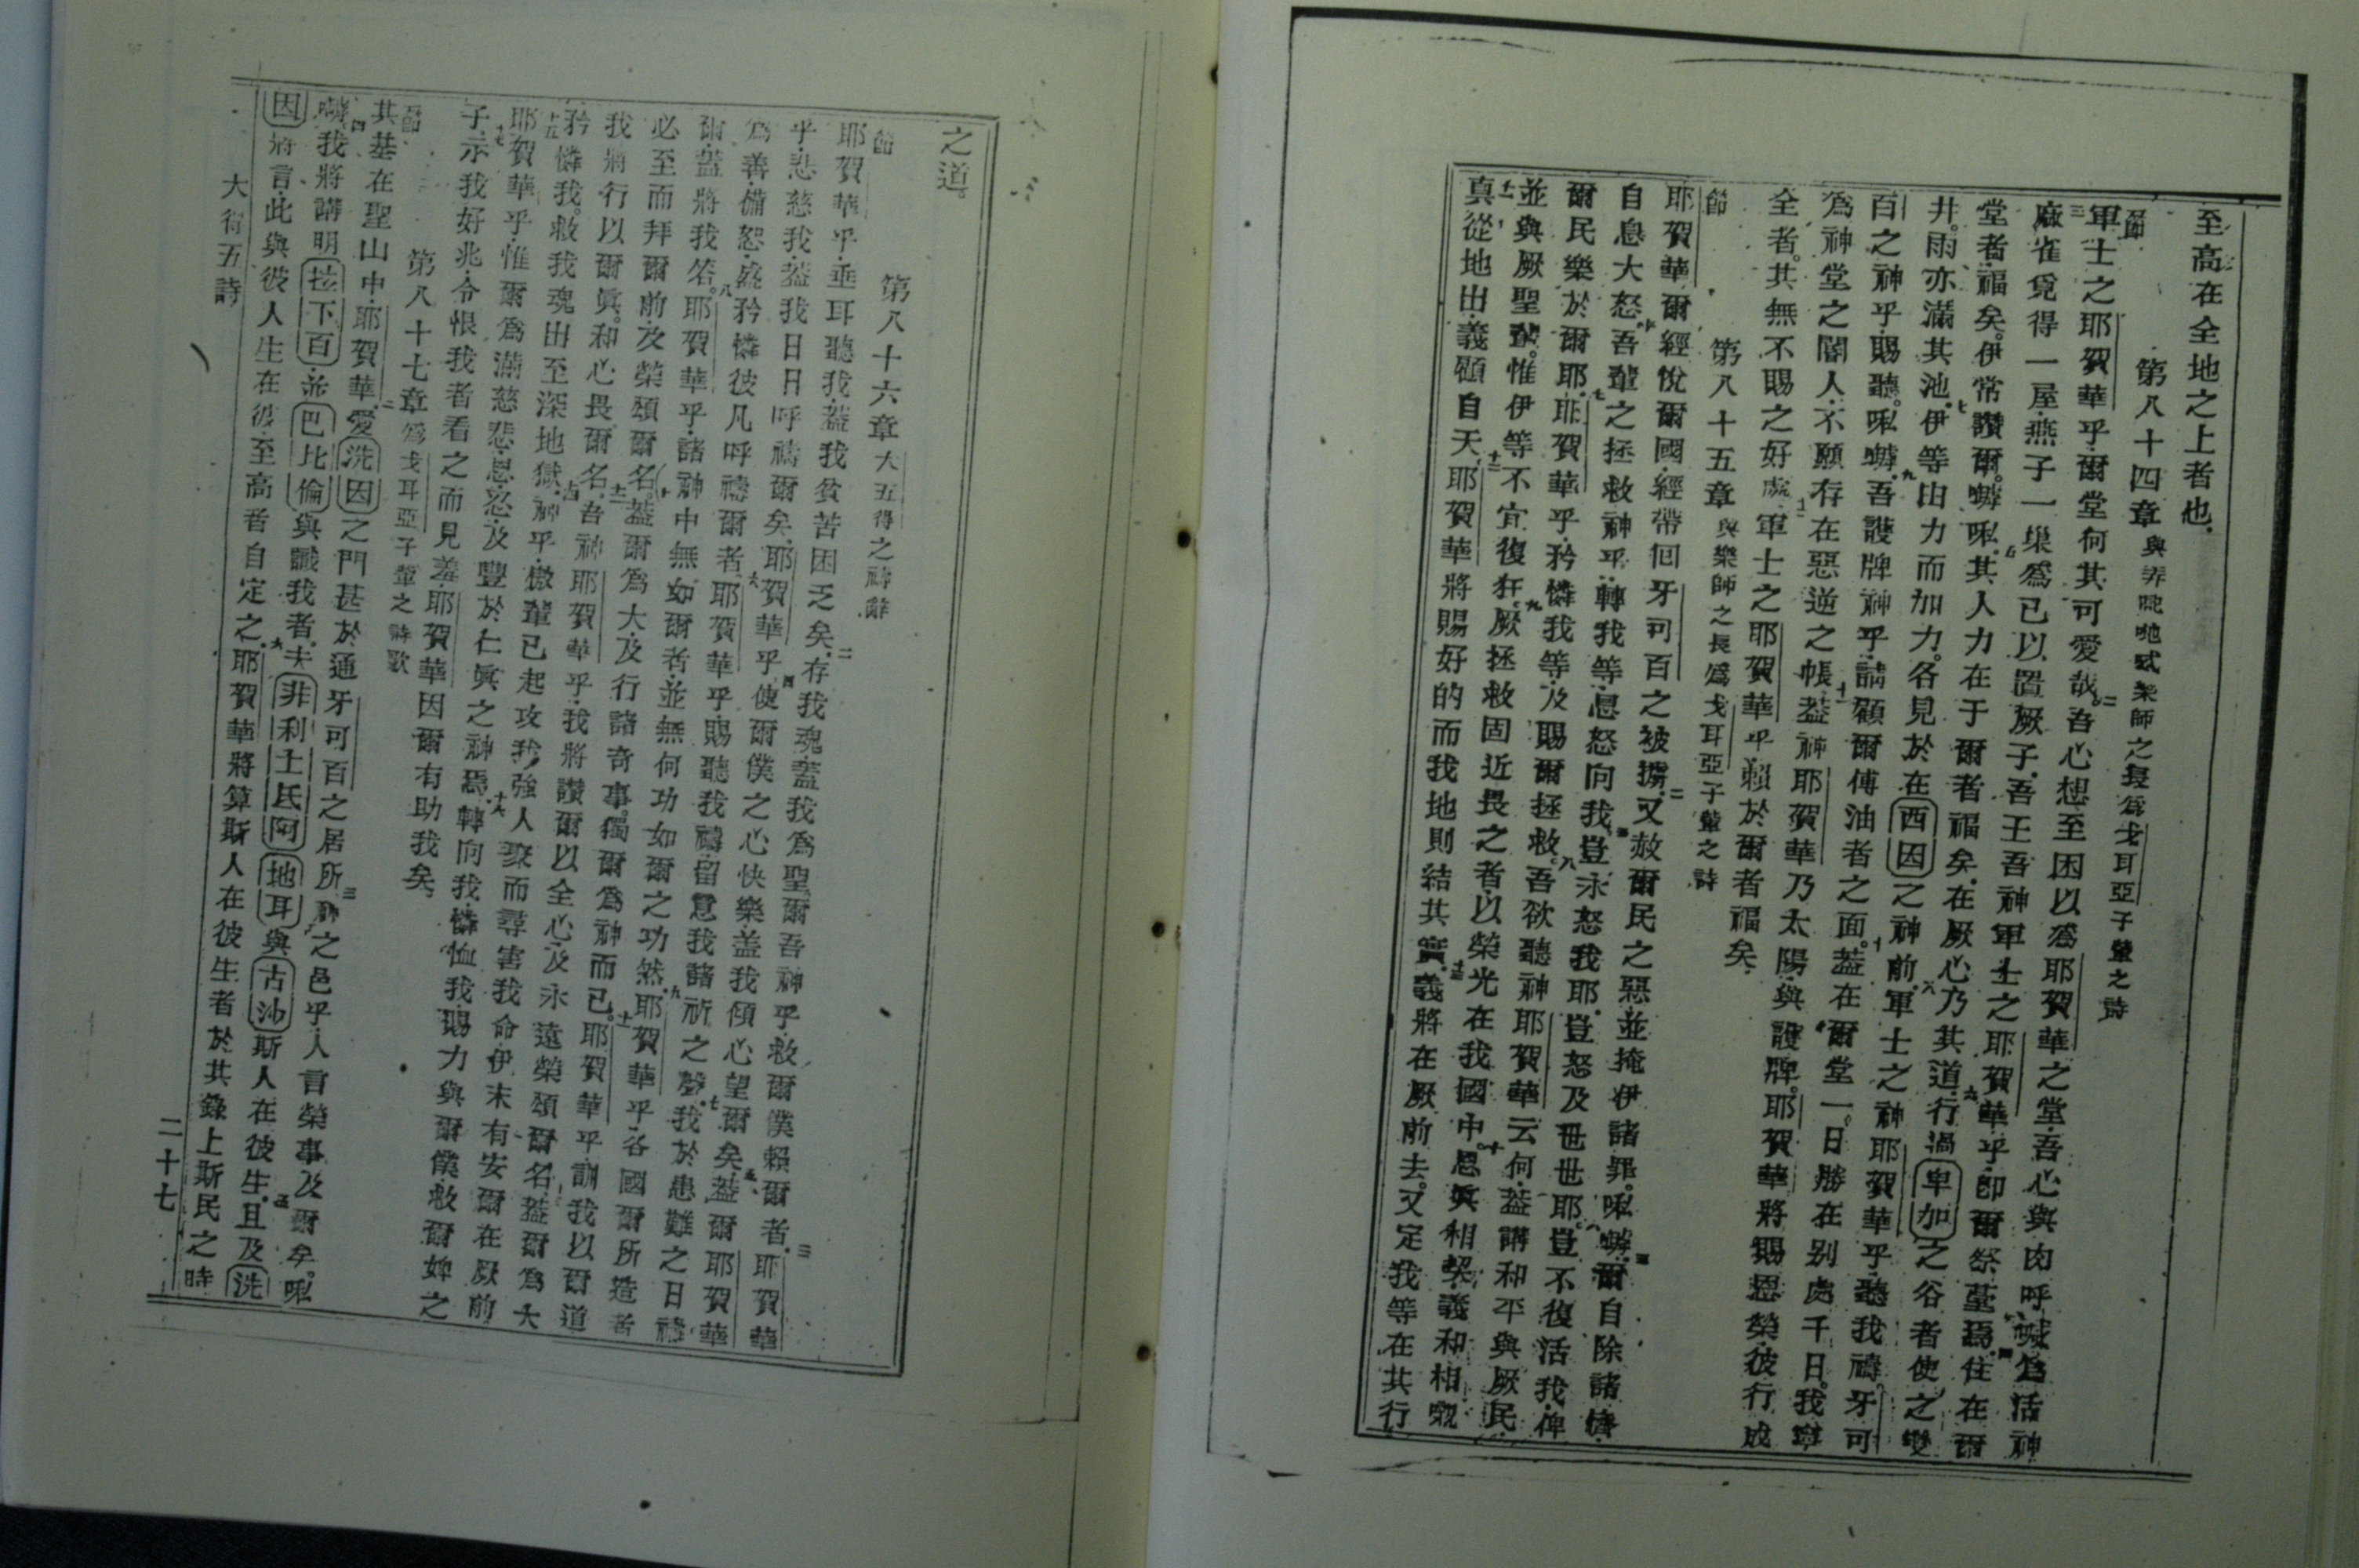 至高在全地之上者也
第八十四章 與樂師之長爲戈耳亞子輩之詩
節 軍士之耶賀華乎爾堂何其可愛哉二吾心想至困以爲耶賀華之堂吾心與肉呼喊爲活神
三麻雀覓得一屋燕子一巢爲已以置厥子吾王吾神軍士之耶賀華乎卽爾祭臺焉四住在爾
堂者福矣伊常讚爾𠿝唎五其人力在于爾者福矣在厥心乃其道六行過卑加之谷者使之變
井雨亦滿其池七伊等由力而加力各見於在西因之神前八軍士之神耶賀華乎聽我禱牙可
百之神乎賜聽𠵽𠿝九吾護牌神乎請顧爾傅油者之面十蓋在爾堂一日勝在别處千日我寧
爲神堂之閽人不願存在惡逆之帳十一蓋神耶賀華乃太陽與護牌耶賀華將賜恩榮彼行成
全者其無不賜之好處十二軍士之耶賀華乎賴於爾者福矣
第八十五章 與樂師之長爲戈耳亞子輩之詩
節 耶賀華爾經悅爾國經帶回牙可百之被擄二又赦爾民之惡並掩伊諸罪三爾自除諸憤
自息大怒四吾輩之拯救神乎轉我等息怒向我五豈永怒我耶豈怒及世世耶六豈不復活我俾
爾民樂於爾耶七耶賀華乎矜憐我等及賜爾拯救八吾欲聽神耶賀華云何蓋講和平與厥民
並與厥聖輩惟伊等不宜復狂九厥拯救固近畏之者以榮光在我國中十恩眞相契義和相
十一真從地出義顧自天十二耶賀華將賜好的而我地則結其實十三義將在厥前去又定我等在其行
之道
第八十六章 大五得之禱
節 耶賀華乎垂耳聽我蓋我貧苦困乏矣二存我魂蓋我爲聖爾吾神乎救爾僕賴爾者三耶賀華
乎悲慈我蓋我日日呼禱爾矣四耶賀華乎使爾僕之心快樂蓋我傾心望爾矣五蓋爾耶賀華
爲善備恕盛矜憐彼凡呼禱爾者六耶賀華乎賜聽我禱留意我諸祈之聲七我於患難之日禱
爾蓋將我答八耶賀華乎諸神中無如爾者並無何功如爾之功然九耶賀華乎各國爾所造者
必至而拜爾前及榮頌爾名十蓋爾爲大及行諸奇事獨爾爲神而已十一耶賀華乎訓我以爾道
我將行以爾眞和心畏爾名十二吾神耶賀華乎我將讚爾以全心及永遠榮頌爾名十三蓋爾爲大
矜憐我救我魂出至深地獄十四神乎傲輩已起攻我強人聚而尋害我命伊未有安爾在厥前
十五耶賀華乎惟爾爲滿慈悲恩忍及豐於仁眞之神焉十六轉向我憐恤我賜力與爾僕救爾婢之
子十七示我好兆令恨我者看之而見羞耶賀華因爾有助我矣
第八十七章 爲戈耳亞子輩之詩歌
節 其基在聖山中二耶賀華愛洗因之門甚於通牙可百之居所三神之邑乎人言榮事及爾矣𠵽
𠿝四我將講明拉下百並巴比倫與識我者夫非利士氏阿地耳與古沙斯人在彼生五且及洗
因將言此與彼人生在彼至高者自定之六耶賀華將算斯人在彼生者於其錄上斯民之時
大得五詩
二十七